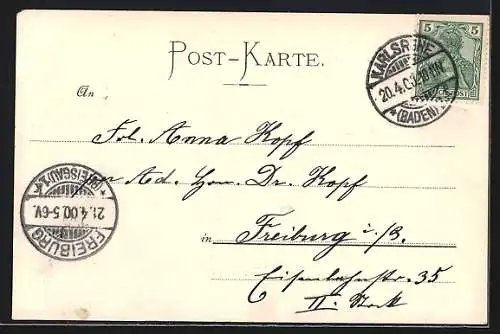 POST-KARTE.
5 5
KARLSRUHE
20.4.00
*(BADEN)
An
Frl. Anna Kopf
Ad. Hrn. Dr. Kopf
in Freiburg i./B.
Eisenbahnstr. 35
II. Stock
*(BREISGAU)1.K
21.4.00.5-6V.
FREIBURG